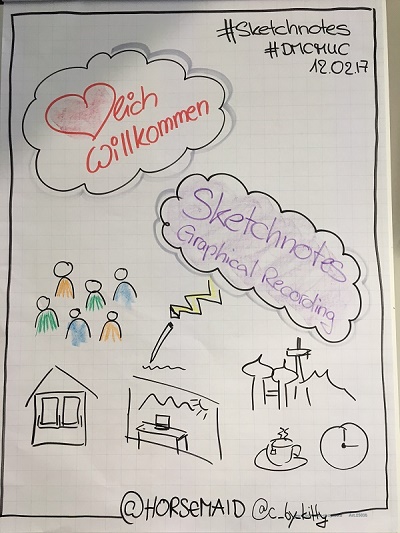 #Sketchnotes
#DMCMUC
12.02.17
lich
Willkommen
Sketchnotes
Graphical Recording
@HORSEMAID @c_by_kitty